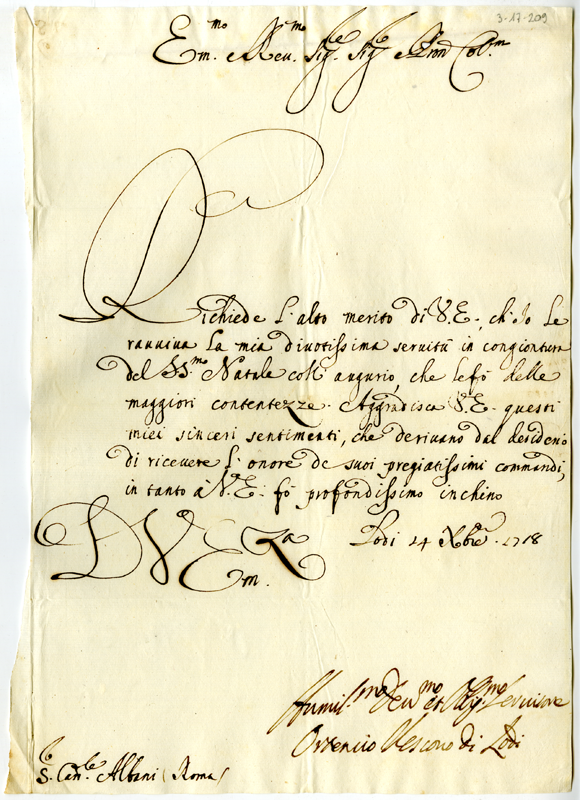 3-17-209
Em.mo e Reu.mo Sig.re Sig.re e Pron Col.mo
Richiede l'alto merito di V. E., ch'Io le
rauuiua la mia diuotissima seruitù in congiontura
del SS.mo Natale coll augurio, che le fò delle
maggiori contentezze. Aggradisca V. E. questi
miei sinceri sentimenti, che deriuano dal desiderio
di riceuere l'onore de suoi pregiatissimi commandi,
in tanto à V. E. fò profondissimo inchino
D V Em.za Lodi 24 Xbre. 1718
Humil.mo Deu.mo et Oblig.mo Seruitore
Ortensio Vescouo di Lodi
S. Car.le Albani (Roma)